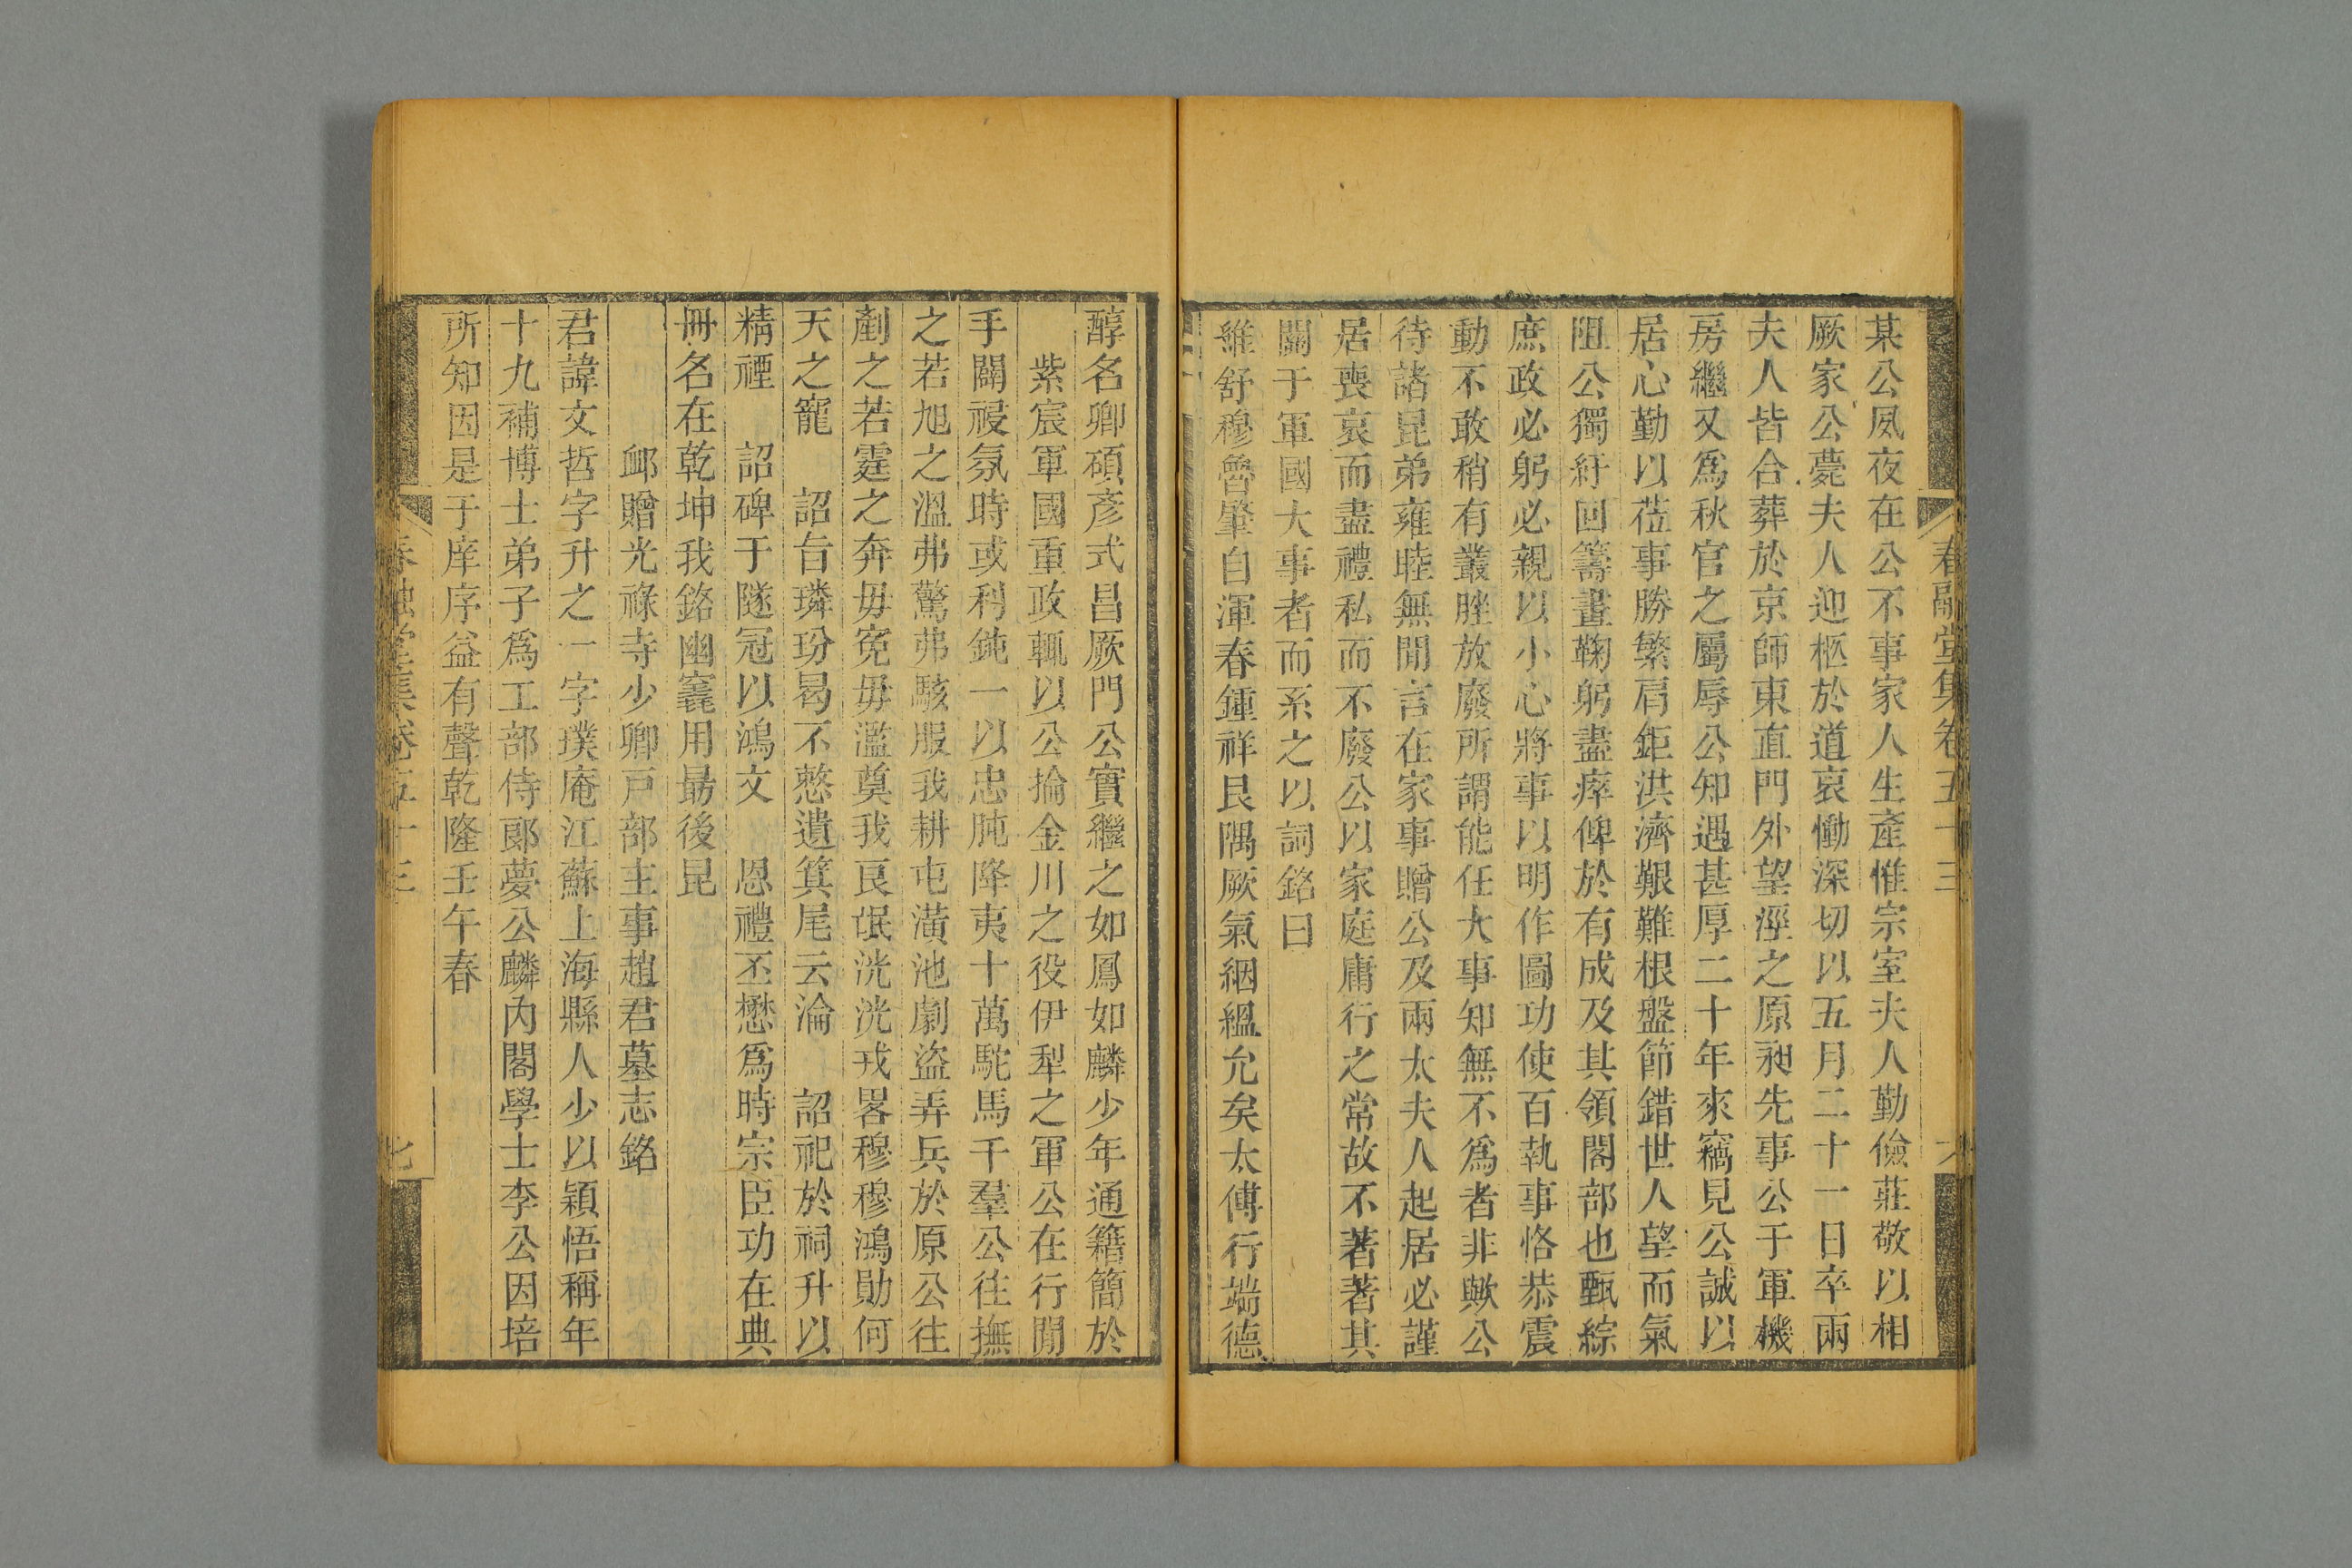 春融堂集卷五十三
某公夙夜在公不事家人生產惟宗室夫人勤儉莊敬以相
厥家公薨夫人迎柩於道哀慟深切以五月二十一日卒兩
夫人皆合葬於京師東直門外望涇之原昶先事公于軍機
房繼又爲秋官之屬辱公知遇甚厚二十年來竊見公誠以
居心勤以莅事勝繁肩鉅洪濟艱難根盤節錯世人望而氣
阻公獨紆回籌畫鞠躬盡瘁俾於有成及其領閣部也甄綜
庶政必躬必親以小心將事以明作圖功使百執事恪恭震
動不敢稍有叢脞放廢所謂能任大事知無不爲者非歟公
待諸昆弟雍睦無閒言在家事贈公及兩太夫人起居必謹
居喪哀而盡禮私而不廢公以家庭庸行之常故不著著其
關于軍國大事者而系之以詞銘曰
維舒穆魯肇自渾春鍾祥艮隅厥氣絪縕允矣太傅行端德
醇名卿碩彥式昌厥門公實繼之如鳳如麟少年通籍簡於
紫宸軍國重政輒以公掄金川之役伊犁之軍公在行閒
手闢祲氛時或利鈍一以忠肫降夷十萬駝馬千羣公往撫
之若旭之溫弗驚弗駭服我耕屯潢池劇盜弄兵於原公往
劀之若霆之奔毋寃毋濫奠我良氓洸洸戎畧穆穆鴻勛何
天之寵　詔旨璘玢曷不憖遺箕尾云淪　詔祀於祠升以
精禋　詔碑于隧冠以鴻文　恩禮丕懋爲時宗臣功在典
冊名在乾坤我銘幽窾用最後昆
卹贈光祿寺少卿戸部主事趙君墓志銘
君諱文哲字升之一字璞庵江蘇上海縣人少以穎悟稱年
十九補博士弟子爲工部侍郎夢公麟內閣學士李公因培
所知因是于庠序益有聲乾隆壬午春
春融堂集卷五十三
七